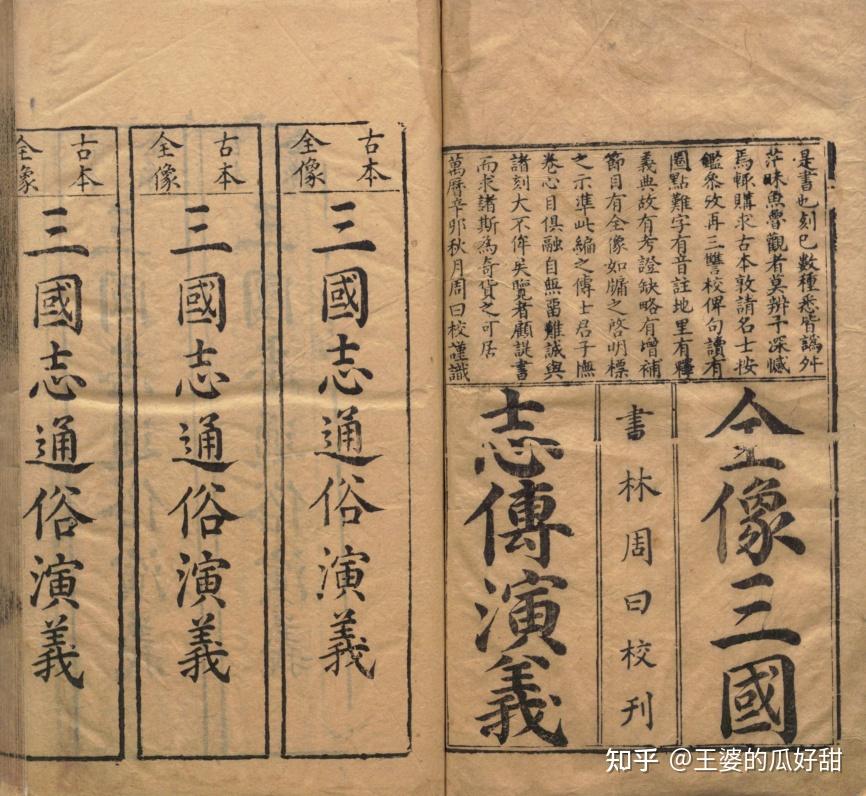 是書也刻已數種悉皆譌舛
茫昧魚魯觀者莫辨予深憾
焉輙購求古本敦請名士按
鑑參攷再三讐校俾句讀有
圈點難字有音註地里有釋
義典故有考證缺略有增補
節目有全像如牖之啓明標
之示準此編之傳士君子憮
卷心目俱融自無留難誠與
諸刻大不侔矣覽者顧諟書
而求諸斯為奇貨之可居
萬曆辛卯秋月周曰校謹識
全像三國
書林周曰校刊
志傳演義
古本
全像
三國志通俗演義
古本
全像
三國志通俗演義
古本
全像
三國志通俗演義
知乎 @王婆的瓜好甜